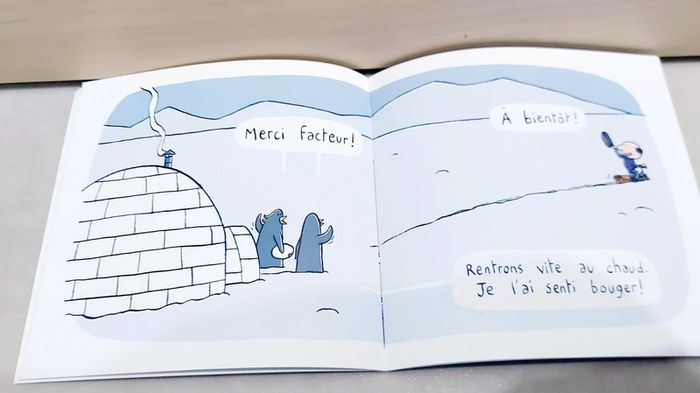 Merci facteur!
À bientôt!
Rentrons vite au chaud.
Je l'ai senti bouger!